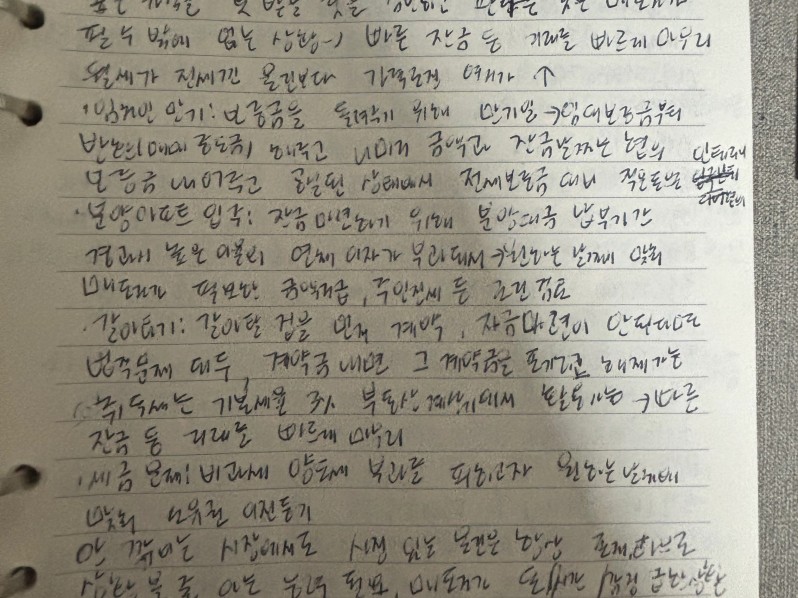 필 수 밖에 없는 상황→ 빠른 잔금 등 거래를 빠르게 마무리
월세가 전세낀 물건보다 가격조정 여지가 ↑
·임차인 만기: 보증금을 돌려주기 위해 만기일 →임대보증금부터
반환 중도금) 해주고 나머지 금액과 잔금날짜는 협의 인테리어
보증금 내어주고 공실된 상태에서 전세보증금 대비
·분양아파트 입주: 잔금마련하기 위해 분양대금 납부기간
경과시 높은 이율의 연체 이자가 부과돼서→원하는 날짜에 맞춰
매도자가 필요한 금액지급, 주인전세 등 조건 검토
·갈아타기: 갈아탈 집을 먼저 계약, 자금마련이 안된다면
법적문제 대두, 계약금 내면 그 계약금을 포기하고 해제가능
취득세는 기본세율 3% 부동산 계약에서 활용가능→빠른
잔금 등 거래를 빠르게 마무리
·세금 문제: 비과세 양도세 부과를 피하고자 원하는 날짜에
맞춰 소유권 이전등기
안 깎이는 시장에서도 사정 있는 물건은 항상 존재,
상황 부 줄 아는 노력 필요, 매도자가 돈/시간/감정 급한 상황